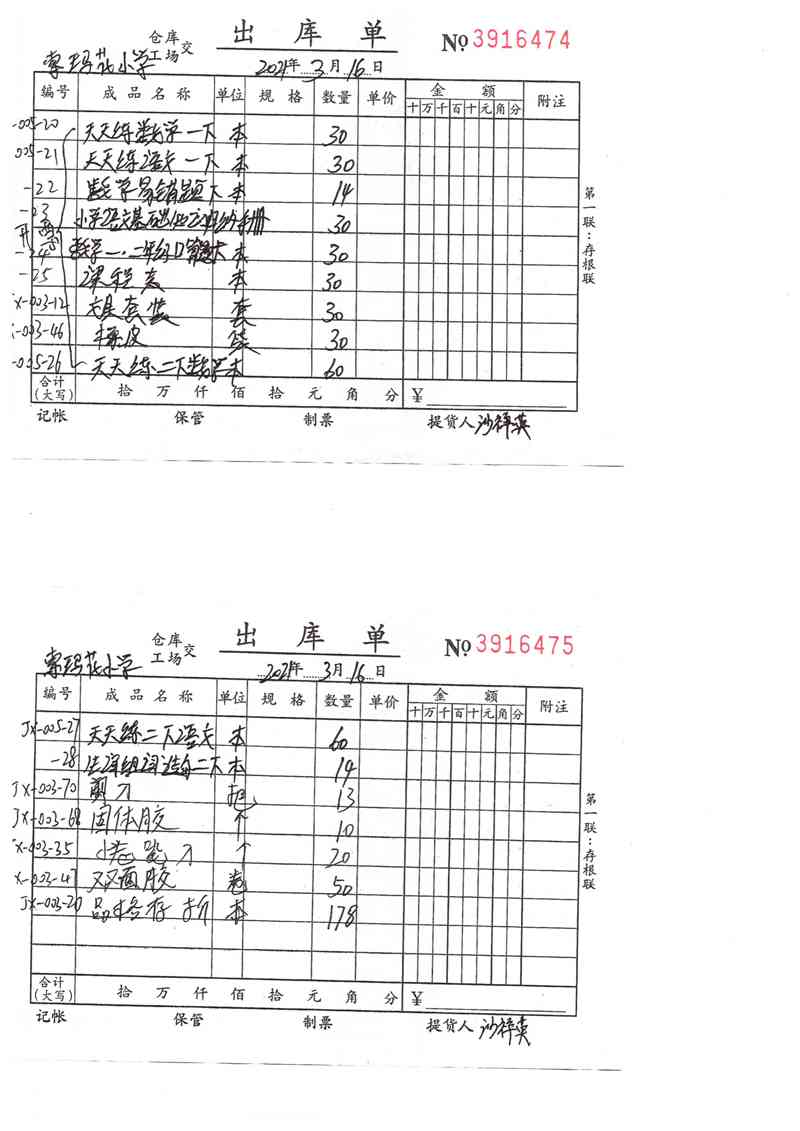 仓库 出 库 单 № 3916474
工场 交
索玛花小学 2021年 3月 16日
编号 成品名称 单位 规格 数量 单价 金额 附注
十 万 千 百 十 元 角 分
-005-20 天天练数学一下 本 30
005-21 天天练语文一下 本 30
-22 数学易错题下 本 14
-23 小学语文基础 手册 30
-24 数学一.二年级口算 本 30
-25 课程表 本 30
-003-12 套装 套 30
-003-46 橡皮 30
-005-26 天天练二下数学 本 60
合计(大写) 拾 万 仟 佰 拾 元 角 分 ¥
记帐 保管 制票 提货人 沙祥英
第一联:存根联
仓库 出 库 单 № 3916475
工场 交
索玛花小学 2021年 3月 16日
编号 成品名称 单位 规格 数量 单价 金额 附注
十 万 千 百 十 元 角 分
JX-005-27 天天练二下语文 本 60
-28 生字组词造句二下 本 14
JX-003-70 剪刀 把 13
JX-003-68 固体胶 个 10
X-003-35 刀 个 20
X-003-47 双面胶 卷 50
JX-003-20 品格存折 本 178
合计(大写) 拾 万 仟 佰 拾 元 角 分 ¥
记帐 保管 制票 提货人 沙祥英
第一联:存根联